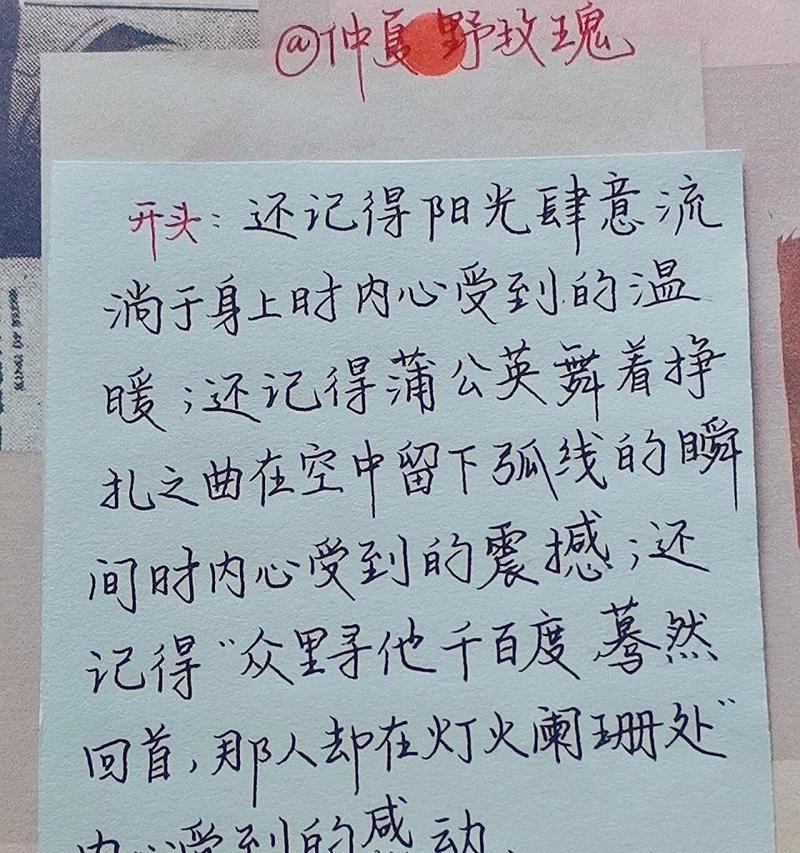 @仲夏野玫瑰
开头：还记得阳光肆意流
淌于身上时内心受到的温
暖；还记得蒲公英舞着挣
扎之曲在空中留下弧线的瞬
间时内心受到的震撼；还
记得“众里寻他千百度 蓦然
回首，那人却在灯火阑珊处”
内心受到的感动．